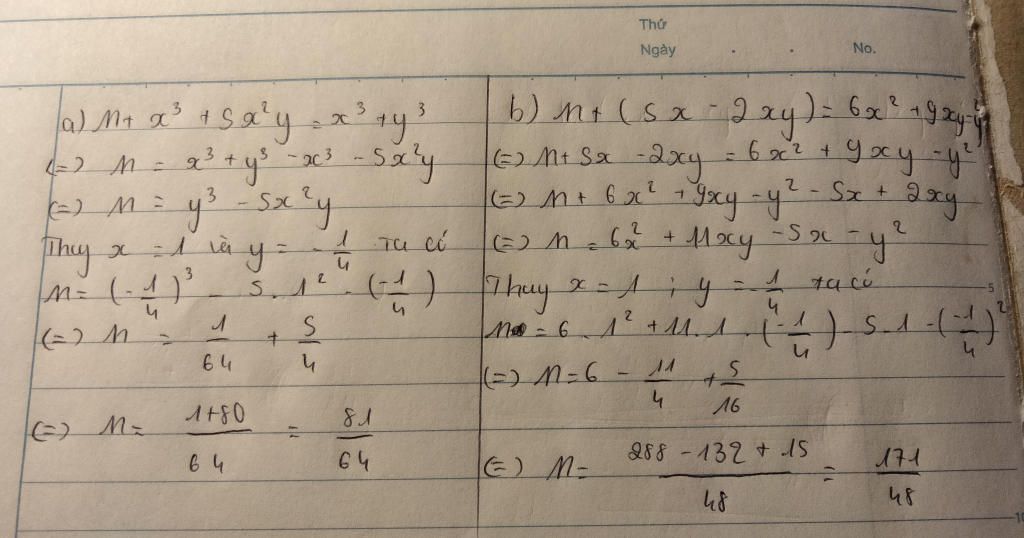 Thứ
Ngày . . No.
a) M + x³ + 5x²y = x³ + y³
(=) M = x³ + y³ - x³ - 5x²y
(=) M = y³ - 5x²y
Thay x = 1 và y = -1/4 ta có
M = (-1/4)³ - 5 . 1² . (-1/4)
(=) M = 1/64 + 5/4
(=) M = 1+80/64 = 81/64
b) M + (5x - 2xy) = 6x² + 9xy - y²
(=) M + 5x - 2xy = 6x² + 9xy - y²
(=) M + 6x² + 9xy - y² - 5x + 2xy
(=) M = 6x² + 11xy - 5x - y²
Thay x = 1 ; y = -1/4 ta có
M = 6 . 1² + 11 . 1 . (-1/4) - 5 . 1 - (-1/4)²
(=) M = 6 - 11/4 + 5/16
(=) M = 288 - 132 + 15/48 = 171/48
5
10